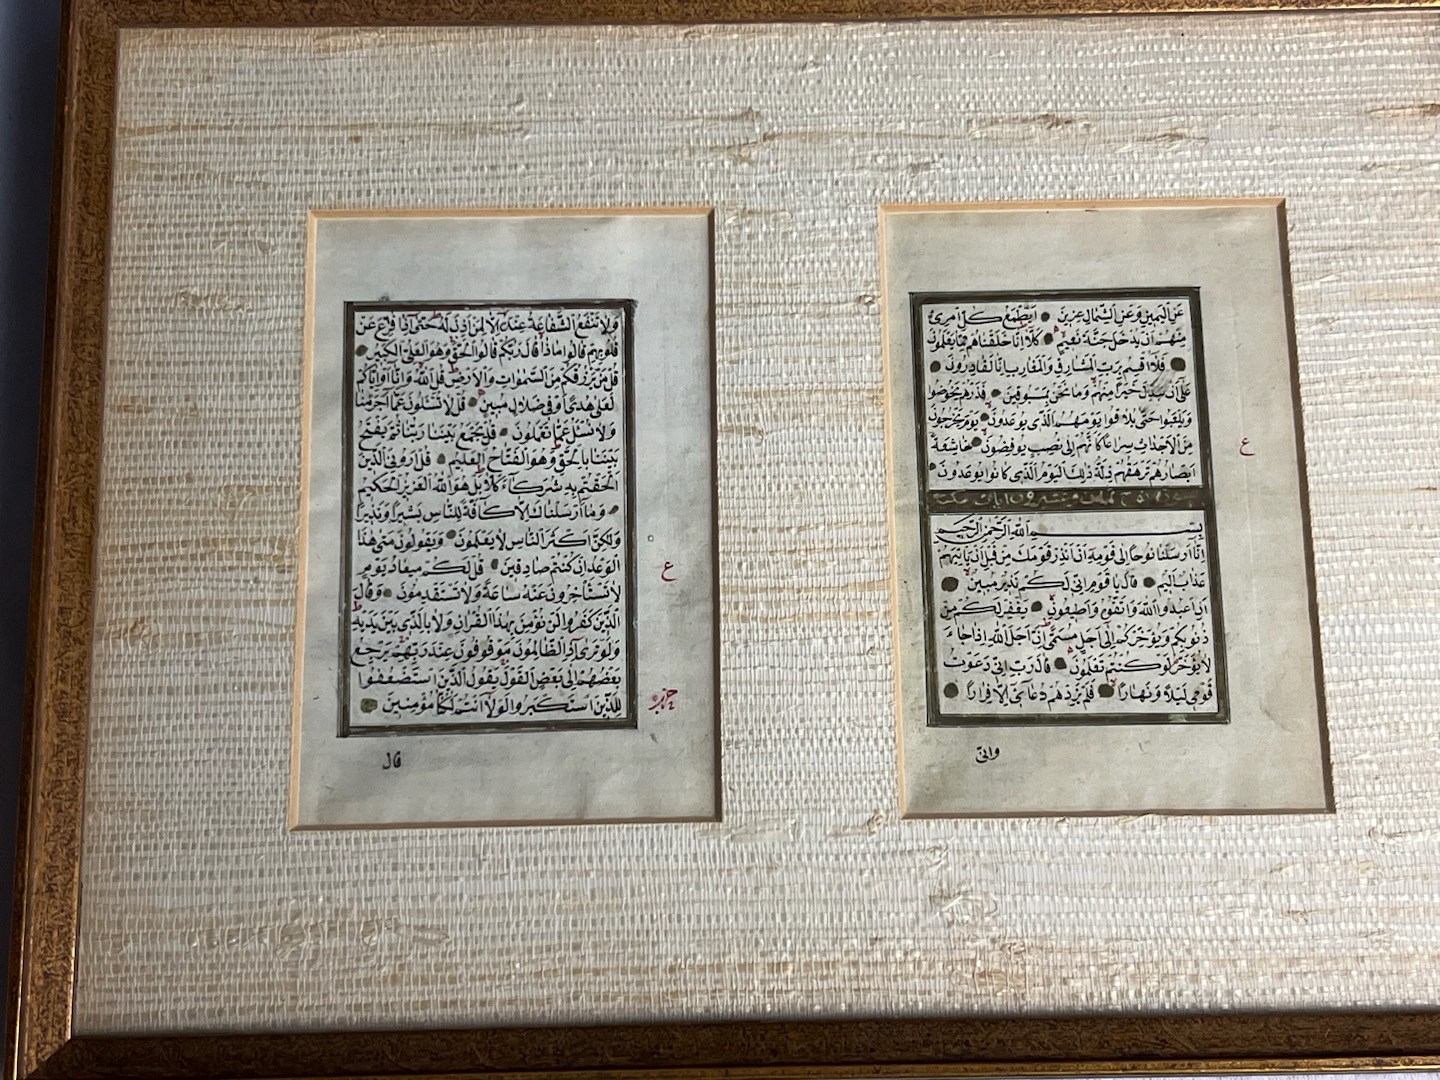 ولا تنفع الشفاعة عنده الا لمن اذن له حتى اذا فزع عن
قلوبهم قالوا ماذا قال ربكم قالوا الحق وهو العلي الكبير
قل من يرزقكم من السموات والارض قل الله وانا او اياكم
لعلى هدى او في ضلال مبين قل لا تسئلون عما اجرمنا
ولا نسئل عما تعملون قل يجمع بيننا ربنا ثم يفتح
بيننا بالحق وهو الفتاح العليم قل اروني الذين
الحقتم به شركاء كلا بل هو الله العزيز الحكيم
وما ارسلناك الا كافة للناس بشيرا ونذيرا
ولكن اكثر الناس لا يعلمون ويقولون متى هذا
الوعد ان كنتم صادقين قل لكم ميعاد يوم
لا تستأخرون عنه ساعة ولا تستقدمون وقال
الذين كفروا لن نؤمن بهذا القران ولا بالذي بين يديه
ولو ترى اذ الظالمون موقوفون عند ربهم يرجع
بعضهم الى بعض القول يقول الذين استضعفوا
للذين استكبروا لولا انتم لكنا مؤمنين
ع
حزب
قال
عن اليمين وعن الشمال عزين ايطمع كل امرئ
منهم ان يدخل جنة نعيم كلا انا خلقناهم مما يعلمون
فلا اقسم برب المشارق والمغارب انا لقادرون
على ان نبدل خيرا منهم وما نحن بمسبوقين فذرهم يخوضوا
ويلعبوا حتى يلاقوا يومهم الذي يوعدون يوم يخرجون
من الاجداث سراعا كانهم الى نصب يوفضون خاشعة
ابصارهم ترهقهم ذلة ذلك اليوم الذي كانوا يوعدون
نوح وعشرون ايات مكية
بسم الله الرحمن الرحيم
انا ارسلنا نوحا الى قومه ان انذر قومك من قبل ان ياتيهم
عذاب اليم قال يا قوم اني لكم نذير مبين
ان اعبدوا الله واتقوه واطيعون يغفر لكم من
ذنوبكم ويؤخركم الى اجل مسمى ان اجل الله اذا جاء
لا يؤخر لو كنتم تعلمون قال رب اني دعوت
قومي ليلا ونهارا فلم يزدهم دعائي الا فرارا
ع
واني